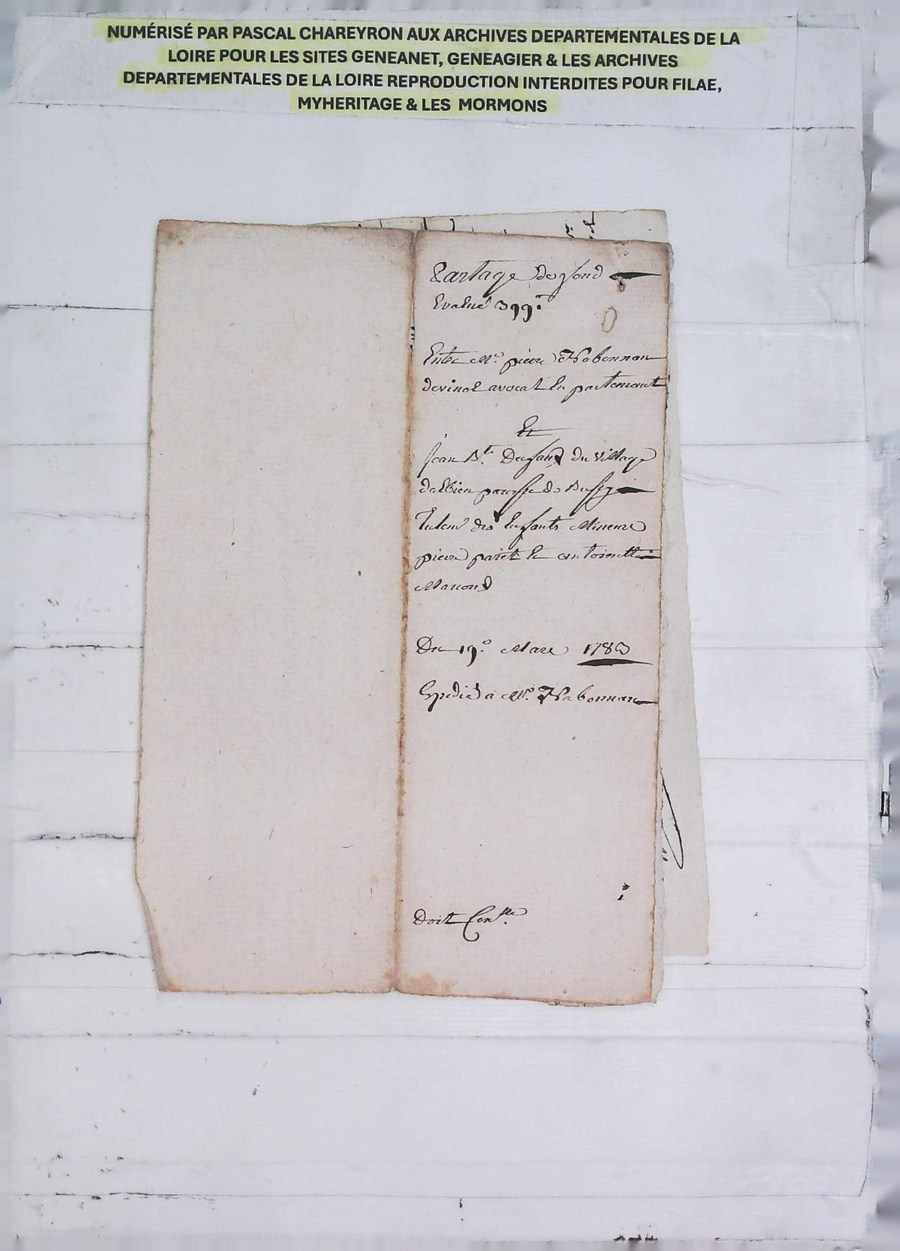 NUMÉRISÉ PAR PASCAL CHAREYRON AUX ARCHIVES DEPARTEMENTALES DE LA
LOIRE POUR LES SITES GENEANET, GENEAGIER & LES ARCHIVES
DEPARTEMENTALES DE LA LOIRE REPRODUCTION INTERDITES POUR FILAE,
MYHERITAGE & LES MORMONS
Partage de fond
Evalué 399
Entre Me. pierre
avocat en parlement
Et
Jean Bte. Dufant du village
paroisse de Bussy
Tuteur des Enfants Mineurs
pierre paret et antoinette
Marcond
Du 19e Mars 1783
Expedié a Mr.
Doit